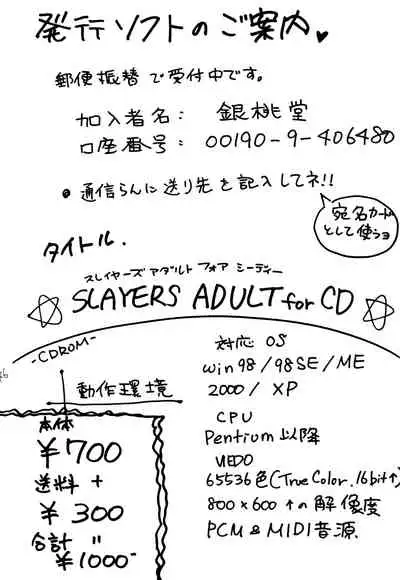 発行ソフトのご案内♥
郵便振替で受付中です。
加入者名: 銀桃堂
口座番号: 00190-9-406480
●通信らんに送り先を記入してネ!!
宛名カード
として使うョ
タイトル.
スレイヤーズ アダルト フォア シーディー
SLAYERS ADULT for CD
-CDROM-
動作環境
本体
¥700
送料 +
¥300
合計 〃
¥1000-
対応 OS
Win98/98SE/ME
2000/ XP
CPU
Pentium以降
VIEDO
65536色(TrueColor.16bit↑)
800×600↑の解像度
PCM & MIDI音源